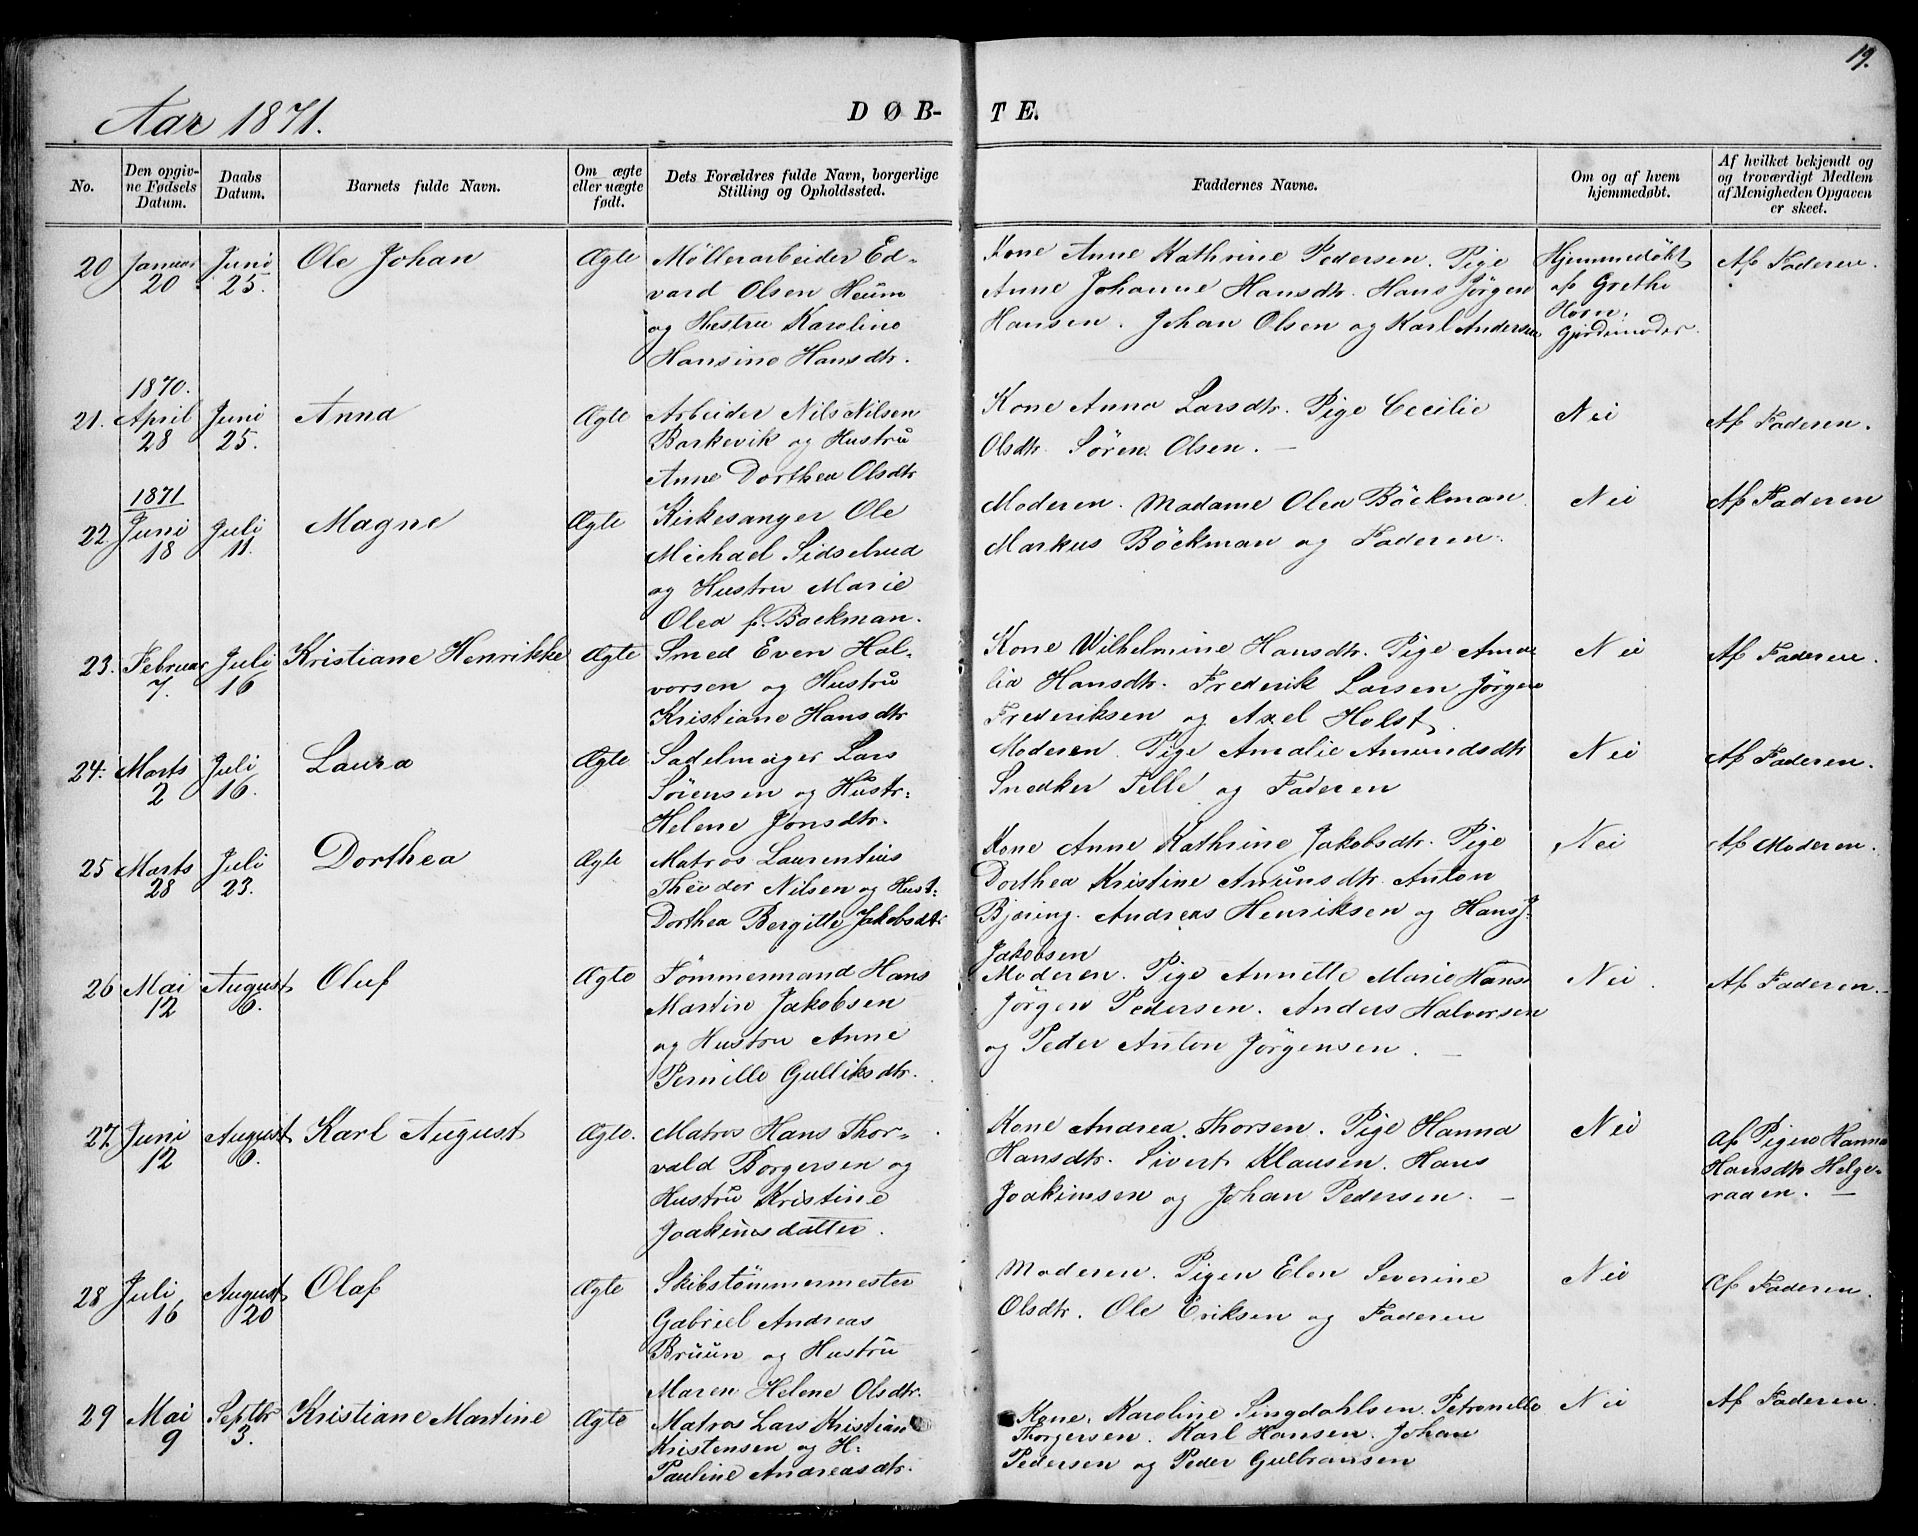 19.
Aar 1871.
DØB-
TE.
No.
Den opgiv-
ne Fødsels
Datum.
Daabs
Datum.
Barnets fulde Navn.
Om ægte
eller uægte
født.
Dets Forældres fulde Navn, borgerlige
Stilling og Opholdssted.
Faddernes Navne.
Om og af hvem
hjemmedøbt.
Af hvilket bekjendt og
og troværdigt Medlem
af Menigheden Opgaven
er skeet.
20
Januar
20
Juni
25.
Ole Johan
Ægte
Møllerarbeider Ed-
vard Olsen Heum
og Hustru Karoline
Hansine Hansdtr.
Kone Anne Kathrine Pedersen. Pige
Anne Johanne Hansdtr. Hans Jørgen
Hansen. Johan Olsen og Karl Andersen
Hjemmedøbt
af Grethe
Horn,
Gjordemoder.
Af Faderen.
21.
1870.
April
28
Juni
25.
Anna
Ægte
Arbeider Nils Nilsen
Barkevik og Hustru
Anne Dorthea Olsdtr
Kone Anna Larsdtr. Pige Cecilie
Olsdtr. Sören Olsen. —
Nei
Af Faderen.
22.
1871
Juni
18
Juli
11.
Magne
Ægte
Kirkesanger Ole
Michael Sidselrud
og Hustru Marie
Olea f. Bøckman.
Moderen. Madame Olea Böckman
Markus Böckman og Faderen.
Nei
Af Faderen
23.
Februar
7.
Juli
16
Kristiane Henrikke
Ægte
Smed Even Hal-
vorsen og Hustru
Kristiane Hansdtr
Kone Wilhelmine Hansdtr. Pige Ama-
lia Hansdtr. Frederik Larsen Jørgen
Frederiksen og Axel Holst.
Nei
Af Faderen.
24.
Marts
2
Juli
16.
Laura
Ægte
Sadelmager Lars
Sørensen og Hustr:
Helene Jonsdtr.
Moderen. Pige Amalie Amundsdtr
Snedker Telle og Faderen
Nei
Af Faderen.
25
Marts
28
Juli
23.
Dorthea
Ægte
Matros Laurentius
Theodor Nilsen og Hust:
Dorthea Bergitte Jakobsdtr
Kone Anne Kathrine Jakobsdtr. Pige
Dorthea Kristine Anunsdtr. Anton
Bjøring. Andreas Henriksen og Hans J.
Jakobsen
Nei
Af Moderen.
26
Mai
12
August
6.
Oluf
Ægte
Tømmermand Hans
Martin Jakobsen
og Hustru Anne
Pernille Gulliksdtr.
Moderen. Pige Annette Marie Hans-
Jörgen Pedersen. Anders Halvorsen
og Peder Anton Jørgensen. —
Nei
Af Faderen.
27.
Juni
12
August
6.
Karl August
Ægte.
Matros Hans Thor-
vald Borgersen og
Hustru Kristine
Joakimsdatter.
Kone Andrea Thorsen. Pige Hanna
Hansdtr. Sivert Klausen. Hans
Joakimsen og Johan Pedersen. —
Nei
Af Pigen Hanna
Hansdtr Helge-
raaen. —
28
Juli
16
August
20
Olaf
Ægte
Skibstømmermester
Gabriel Andreas
Bruun og Hustru
Maren Helene Olsdtr.
Moderen. Pigen Elen Severine
Olsdtr. Ole Eriksen og Faderen
Nei
Af Faderen.
29
Mai
9
Septbr
3.
Kristiane Martine
Ægte
Matros Lars Kristian
Kristensen og H:
Pauline Andreasdtr.
Kone, Karoline Singdahlsen. Petronille
Thorgersen. Karl Hansen. Johan
Pedersen og Peder Gulbransen
Nei
Af Faderen.